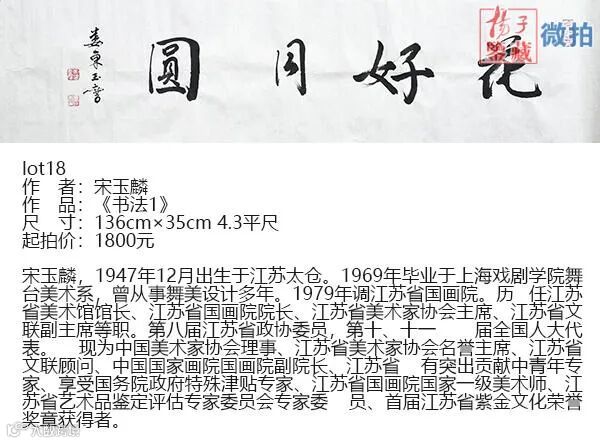 揚子
鑒藏
微拍
花好月圓
婁東玉麟
lot18
作 者：宋玉麟
作 品：《书法1》
尺 寸：136cm×35cm 4.3平尺
起拍价：1800元
宋玉麟，1947年12月出生于江苏太仓。1969年毕业于上海戏剧学院舞
台美术系，曾从事舞美设计多年。1979年调江苏省国画院。历 任江苏
省美术馆馆长、江苏省国画院院长、江苏省美术家协会主席、江苏省文
联副主席等职。第八届江苏省政协委员，第十、十一 届全国人大代
表。 现为中国美术家协会理事、江苏省美术家协会名誉主席、江苏省
文联顾问、中国国家画院国画院副院长、江苏省 有突出贡献中青年专
家、享受国务院政府特殊津贴专家、江苏省国画院国家一级美术师、江
苏省艺术品鉴定评估专家委员会专家委 员、首届江苏省紫金文化荣誉
奖章获得者。